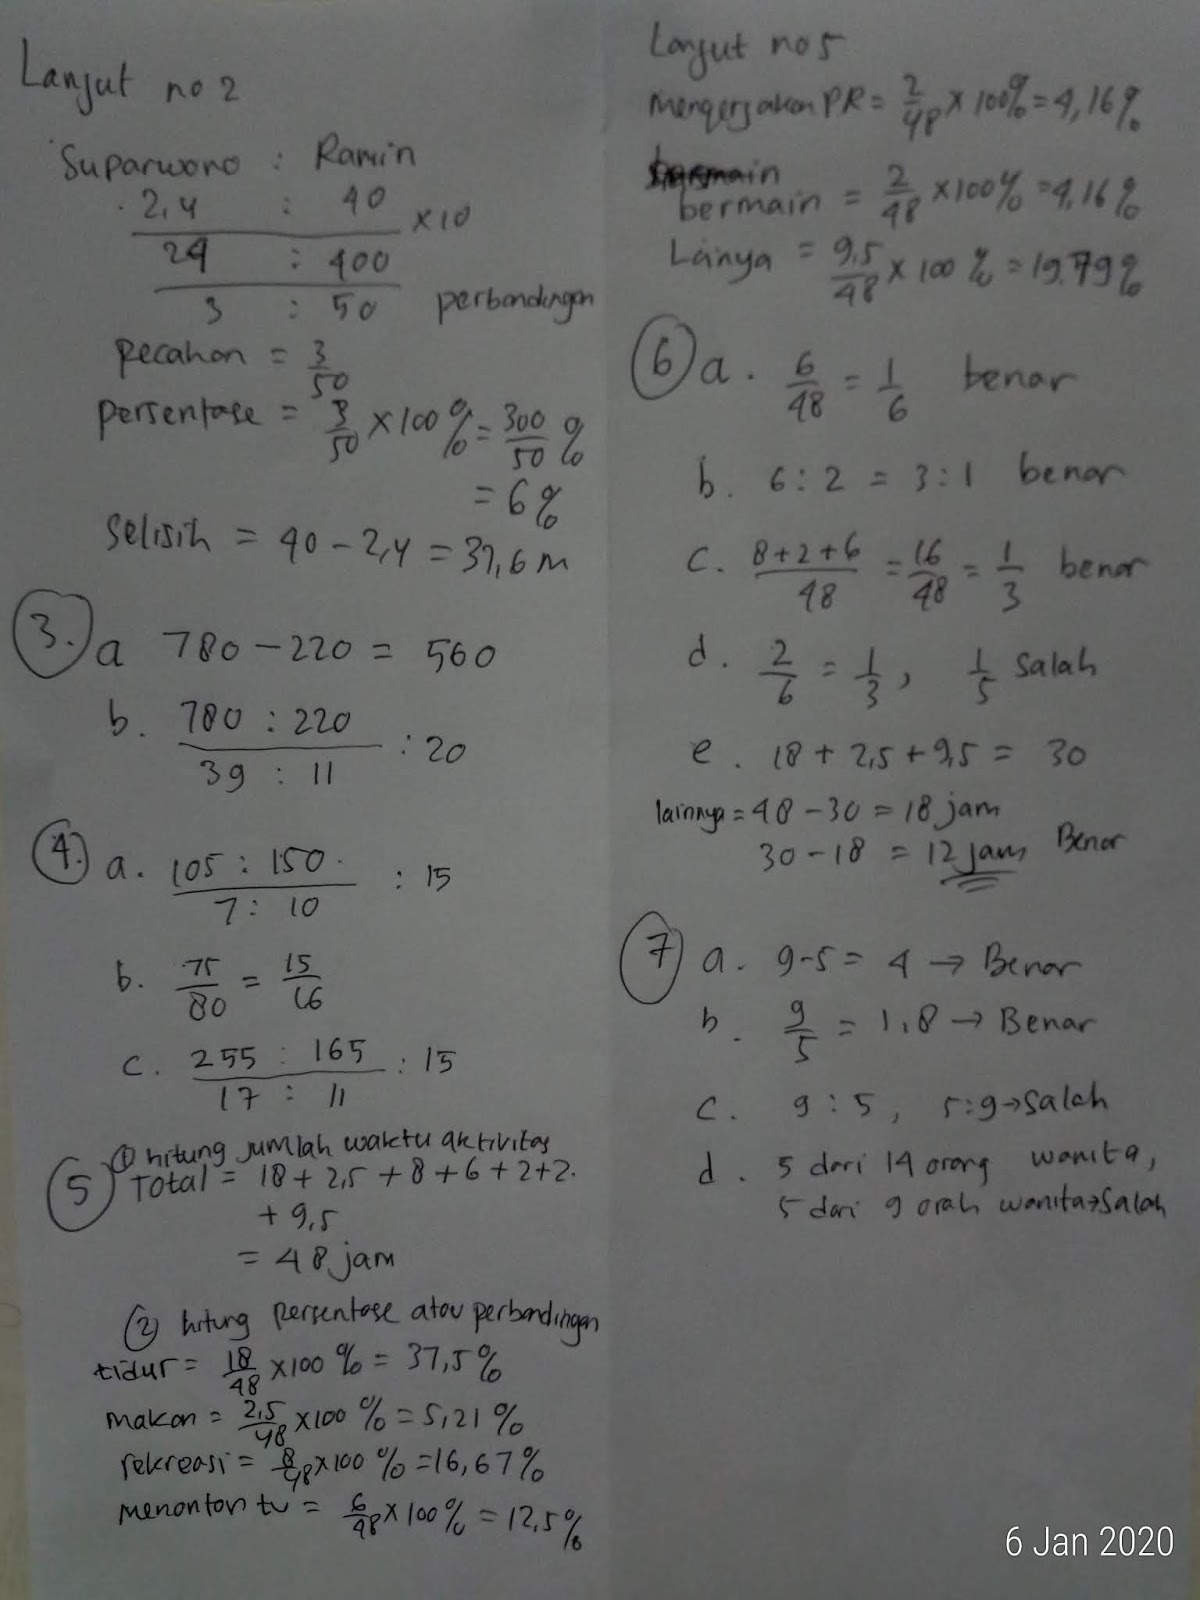 Lanjut no 2
Suparwono : Ramin
2,4 : 40 x10
24 : 400
3 : 50 perbandingan
pecahan = 3/50
persentase = 3/50 x 100% = 300/50 %
= 6%
Selisih = 40 - 2,4 = 37,6 m
3. a 780 - 220 = 560
b. 780 : 220 : 20
39 : 11
4. a. 105 : 150 : 15
7 : 10
b. 75/80 = 15/16
c. 255 : 165 : 15
17 : 11
5 ① hitung jumlah waktu aktivitas
Total = 18 + 2,5 + 8 + 6 + 2 + 2
+ 9,5
= 48 jam
② hitung persentase atau perbandingan
tidur = 18/48 x 100 % = 37,5%
makan = 2,5/48 x 100 % = 5,21 %
rekreasi = 8/48 x 100 % = 16,67%
menonton tv = 6/48 x 100% = 12,5%
Lanjut no 5
Mengerjakan PR = 2/48 x 100% = 4,16%
bermain
bermain = 2/48 x 100% = 4,16%
Lainya = 9,5/48 x 100 % = 19.79%
6 a. 6/48 = 1/6 benar
b. 6 : 2 = 3 : 1 benar
c. 8+2+6/48 = 16/48 = 1/3 benar
d. 2/6 = 1/3, 1/5 Salah
e. 18 + 2,5 + 9,5 = 30
lainnya = 48 - 30 = 18 jam
30 - 18 = 12 jam Benar
7 a. 9-5 = 4 → Benar
b. 9/5 = 1,8 → Benar
c. 9 : 5, 5:9 → Salah
d. 5 dari 14 orang wanita,
5 dari 9 orah wanita → Salah
6 Jan 2020